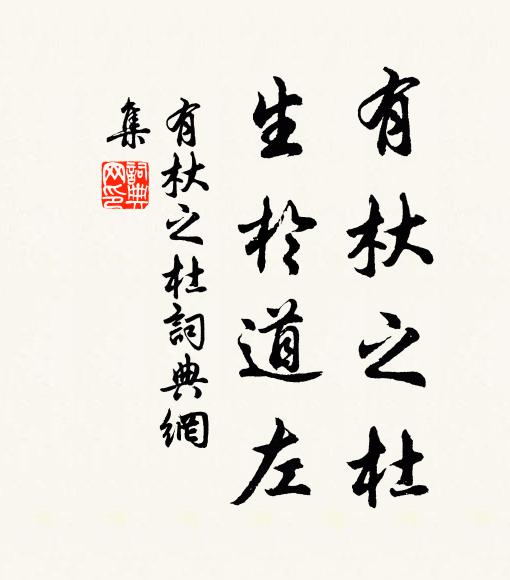 有杕之杜
生於道左
有杕之杜詞典網
集
詞典
网印